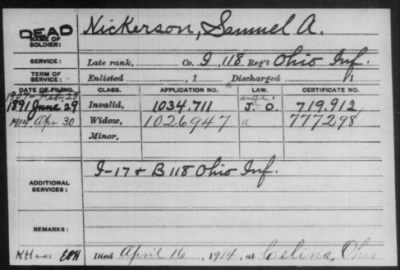 DEAD
NAME OF SOLDIER: Nickerson, Samuel A.
SERVICE: Late rank, Co. I, 118 Reg't Ohio Inf.
TERM OF SERVICE: Enlisted , 1 Discharged , 1
DATE OF FILING. CLASS. APPLICATION NO. LAW. CERTIFICATE NO.
1891 June 29 Invalid, 1034.711 J. O. 719.912
1914 Apr 30 Widow, 1026947 a 777298
Minor,
ADDITIONAL SERVICES: I-17 & B 118 Ohio Inf.
REMARKS:
Died April 16, 1914, at Celina, Ohio